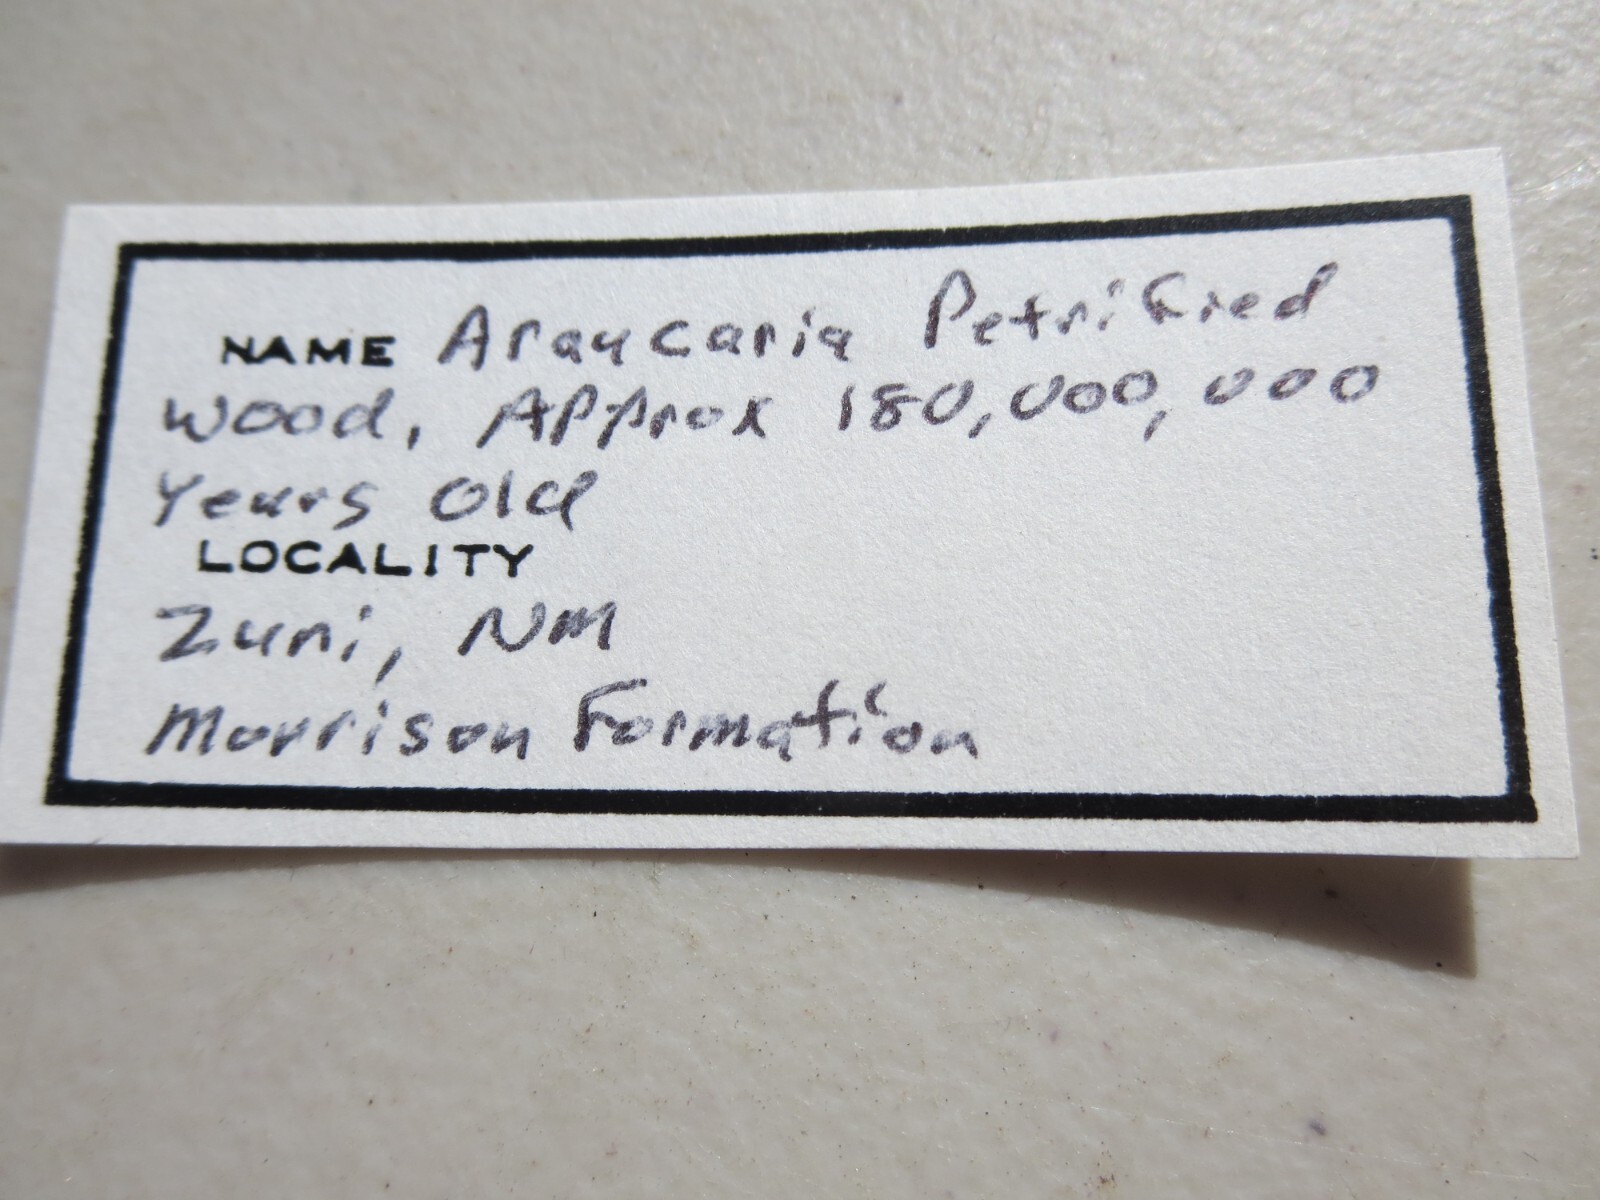 NAME Araucaria Petrified
Wood, Approx 180,000,000
Years Old
LOCALITY
Zuni, NM
Morrison Formation